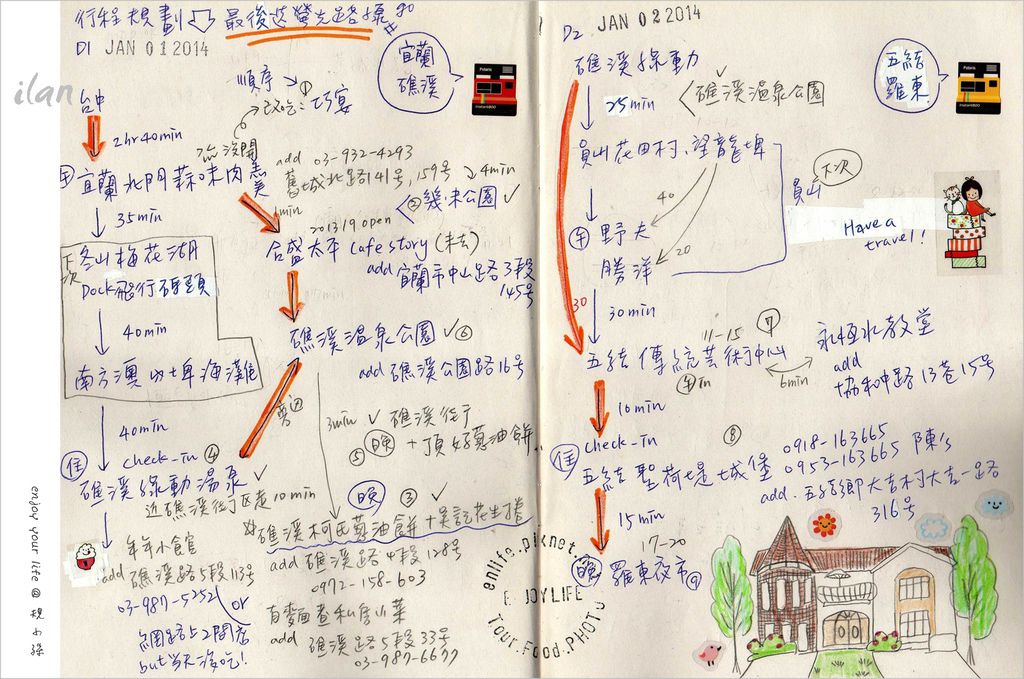 行程規劃 最後送螢光路標 go
D1 JAN 01 2014
宜蘭
礁溪
ilan
台中
順序 ①
改吃：巧宴
2hr 40min
宜蘭北門蒜味肉羹
add 03-932-4293
舊城北路141号,159号
4min
②幾米公園 ✓
1min
35min
2013 19 open
合盛太平 cafe story (未去)
add 宜蘭市中山路3段
145号
下次
冬山梅花湖
Dock飛行碼頭
40min
礁溪溫泉公園 ✓⑥
add 礁溪公園路16号
南方澳內埤海灘
40min
3min ✓ 礁溪街了
⑤ 晚 + 頂好蔥油餅
住
check-in ④
礁溪綠動溫泉 ✓
近礁溪街了區走10min
晚 ③ ✓
礁溪柯氏蔥油餅 + 吳記花生捲
add 礁溪路4段128号
0972-158-603
年年小食官
add 礁溪路5段113号
03-987-5252
or
網路上2間店
but當天沒吃!
add 礁溪路5段33号
03-987-6677
enjoy your life @
D2 JAN 02 2014
五結
羅東
礁溪綠動 ✓
25min
礁溪溫泉公園
員山花田村、望龍埤
下次
員山
40
午 野夫
20
勝洋
Have a
travel!
30
30min
11-15 ⑦
五結傳統藝術中心
午in
6min
永恆水教堂
add
協和中路13巷15号
10min
住
check-in ⑧
五結聖荷緹城堡
0918-163665
0953-163665 陳's
add 五結鄉大吉村大吉一路
316号
15min
17-20
晚 羅東夜市⑨
enlife.pixnet.
ENJOYLIFE
Tour.Food.PHOTO